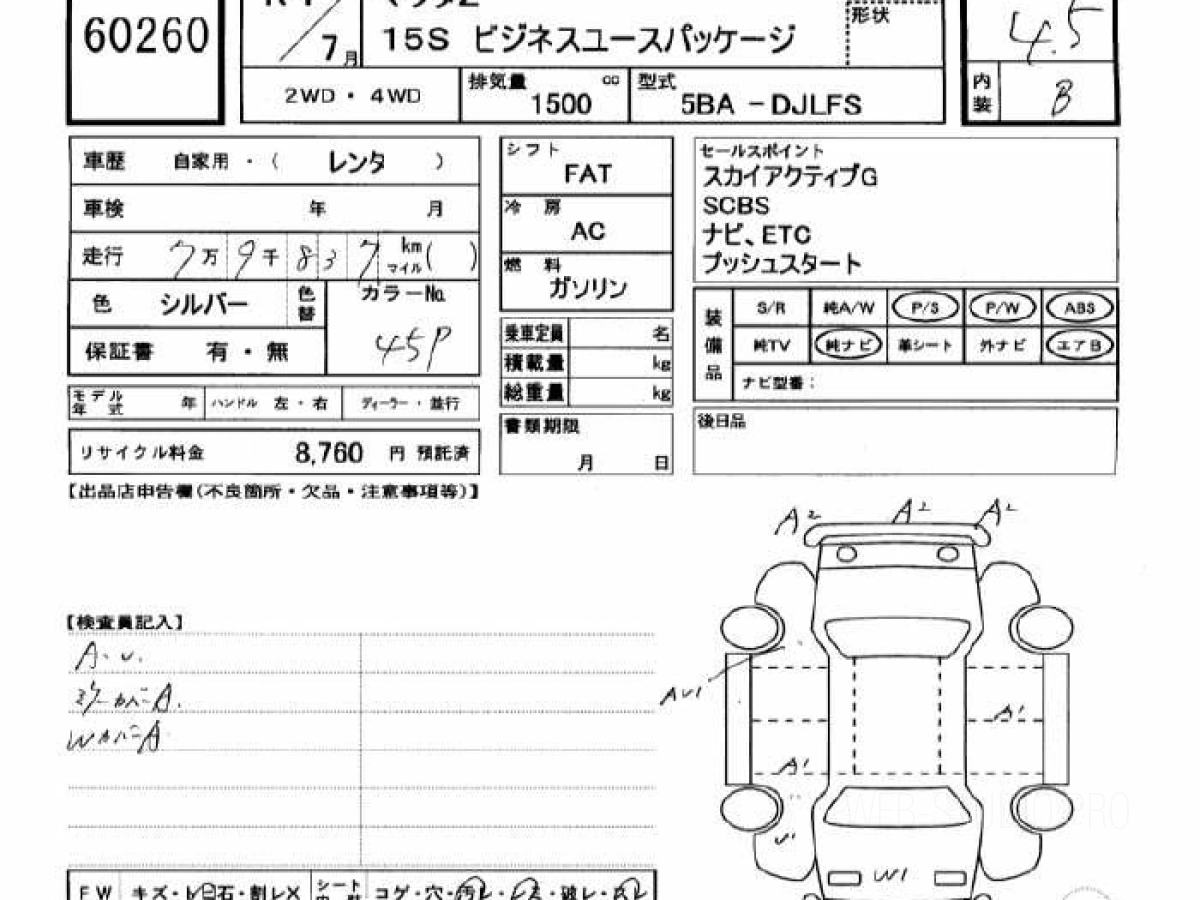 60260
7月
15S ビジネスユースパッケージ
形状
4.5
2WD・4WD
排気量 cc 1500
型式 5BA －DJLFS
内装 B
車歴 自家用・( レンタ )
車検 年 月
走行 7万9千837 km マイル( )
色 シルバー 色替
カラーNo. 45P
保証書 有・無
モデル年式 年 ハンドル 左・右 ディーラー・並行
リサイクル料金 8,760 円 預託済
シフト FAT
冷房 AC
燃料 ガソリン
乗車定員 名
積載量 kg
総重量 kg
書類期限
月 日
セールスポイント
スカイアクティブG
SCBS
ナビ、ETC
プッシュスタート
装備品
S/R 純A/W P/S P/W ABS
純TV 純ナビ 革シート 外ナビ エアB
ナビ型番:
後日品
【出品店申告欄(不良箇所・欠品・注意事項等)】
【検査員記入】
A・U.
ミラーカバーA.
WカバーA
A2 A2 A2
AU1
A1
A1
U1
W1
FW キズ・ 石・割レX シート コゲ・穴・汚レ・ ・破レ・
WEB-S PRO